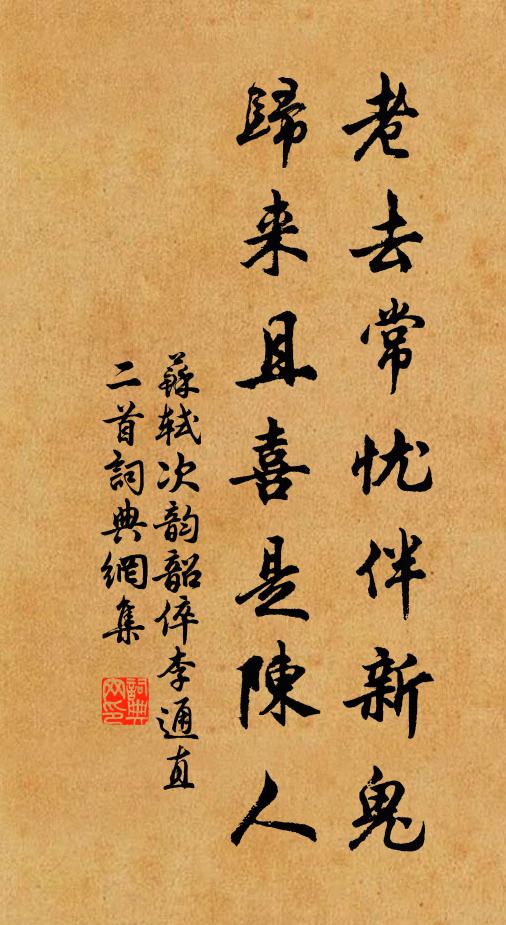 老去常忧伴新鬼
歸来且喜是陳人
蘇轼次韵韶倅李通直
二首詞典網集
詞典网印